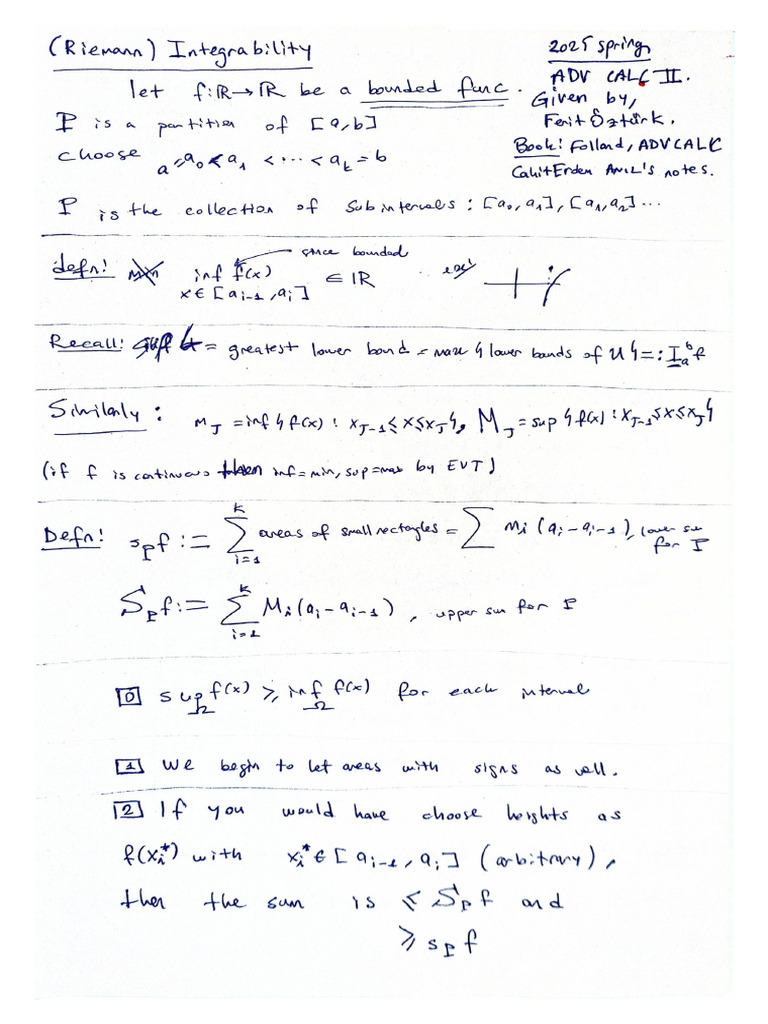 (Riemann) Integrability
2025 spring
ADV CALC II.
Given by,
Ferit Öztürk.
Book: Folland, ADV CALC
Cahit Erden ANIL's notes.
let f: ℝ → ℝ be a bounded func.
P is a partition of [a,b]
choose a = a₀ < a₁ < ... < aₖ = b
P is the collection of subintervals: [a₀, a₁], [a₁, a₂] ...
defn! inf f(x) ∈ ℝ since bounded
x ∈ [aᵢ₋₁, aᵢ]
Recall: = greatest lower bond = max { lower bands of U } =: I_a^b f
Similarly: m_J = inf { f(x) : x_{J-1} ≤ x ≤ x_J }, M_J = sup { f(x) : x_{J-1} ≤ x ≤ x_J }
(if f is continuous then inf=min, sup=max by EVT)
Defn! s_P f := ∑_{i=1}^{k} areas of small rectangles = ∑ mᵢ (aᵢ - aᵢ₋₁), lower sum for P
S_P f := ∑_{i=1}^{k} Mᵢ (aᵢ - aᵢ₋₁), upper sum for P
0 sup_Ω f(x) ≥ inf_Ω f(x) for each interval
1 We begin to let areas with signs as well.
2 If you would have choose heights as
f(xᵢ*) with xᵢ* ∈ [aᵢ₋₁, aᵢ] (arbitrary),
then the sum is ≤ S_P f and
≥ s_P f